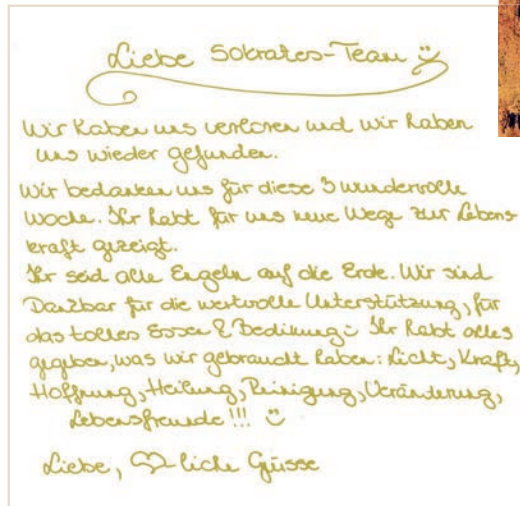 Liebe Sokrates-Team
Wir haben uns verloren und wir haben
uns wieder gefunden.
Wir bedanken uns für diese 3 wundervolle
Woche. Ihr habt für uns neue Wege zur Lebens-
kraft gezeigt.
Ihr seid alle Engeln auf die Erde. Wir sind
Dankbar für die wertvolle Unterstützung, für
das tolles Essen & Bedinung: Ihr habt alles
gegeben, was wir gebraucht haben: Licht, Kraft,
Hoffnung, Heilung, Reinigung, Veränderung,
Lebensfreunde!!!
Liebe, ♡-liche Grüsse